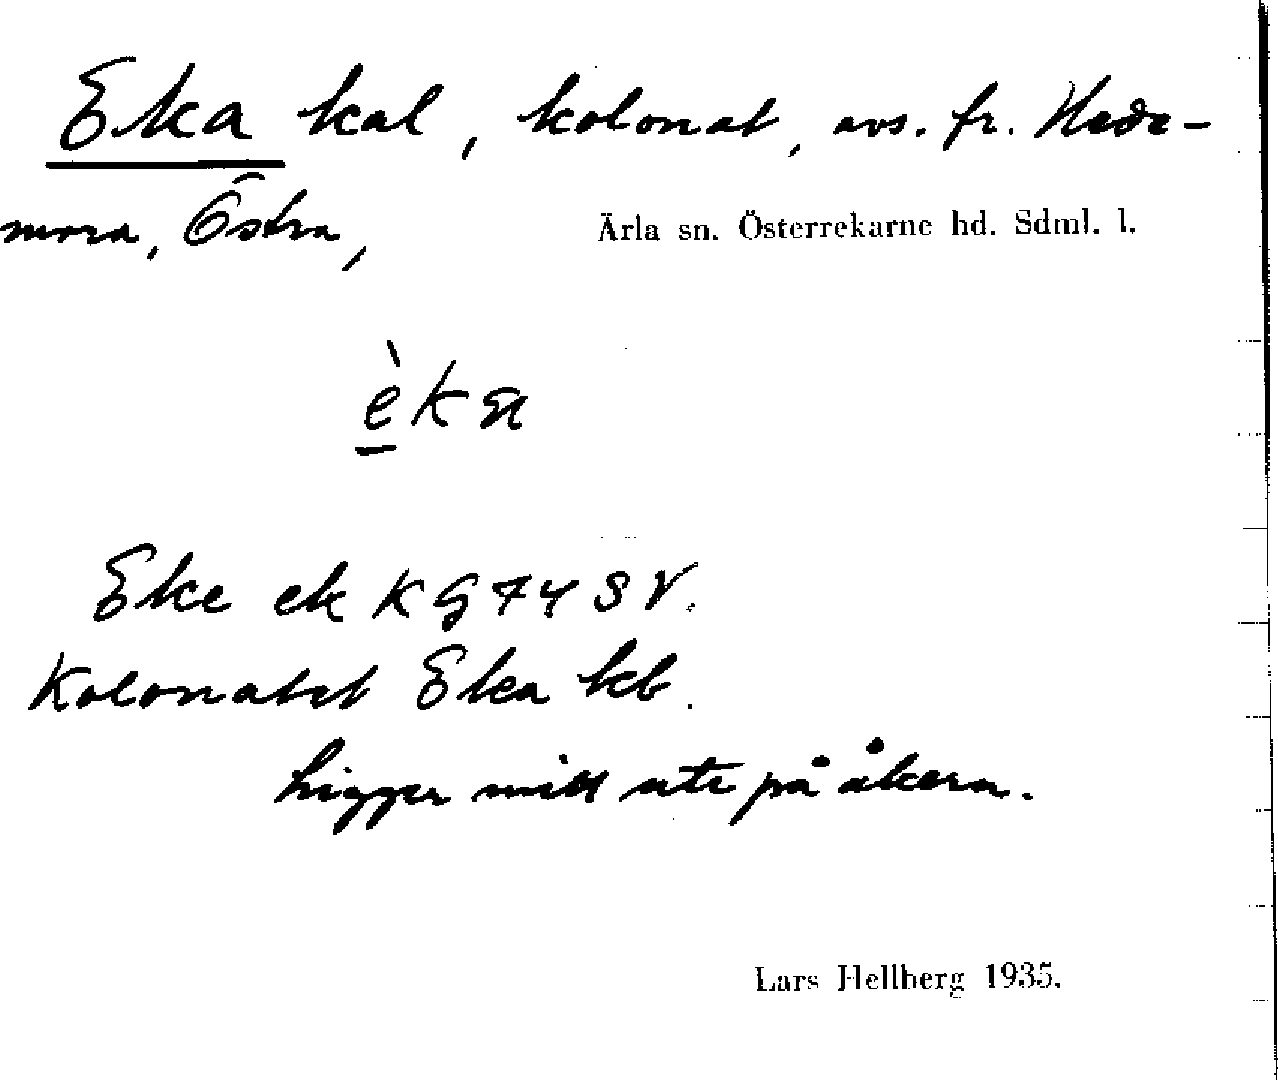 Eka kal, kolonat, avs. fr. Hede-
mora, Östra, Ärla sn. Österrekarne hd. Sdml. l.
èka
Eke ek K G 74 S V.
Kolonatet Eka kb.
Ligger mitt ute på åkern.
Lars Hellberg 1935.